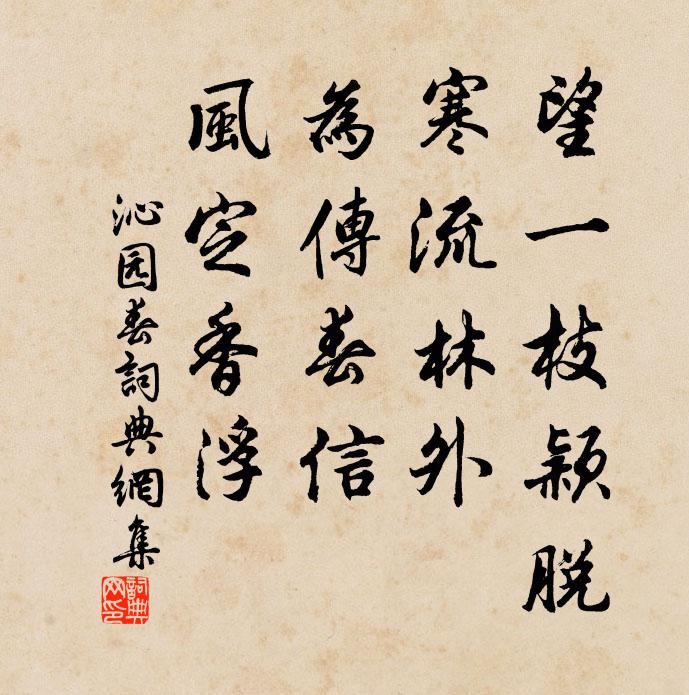 望一枝颖脱
寒流林外
為傳春信
風定香浮
沁园春詞典網集
詞典网印